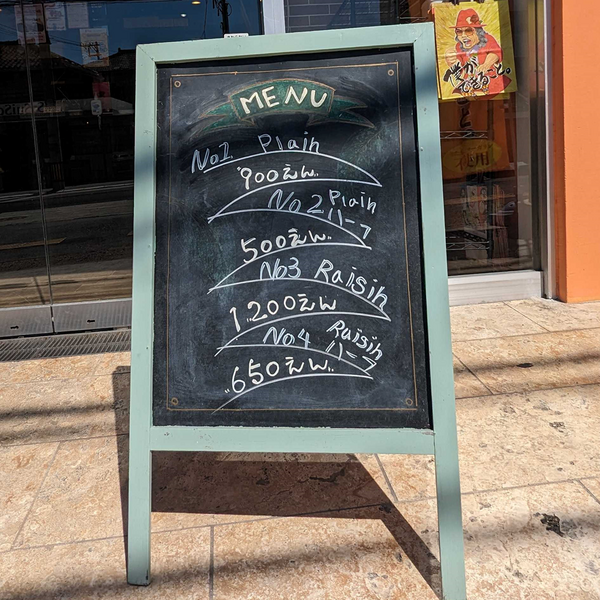 MENU
No1 Plain
900えん
No2 Plain
ハーフ
500えん
No3 Raisin
1,200えん
No4 Raisin
ハーフ
650えん
僕が